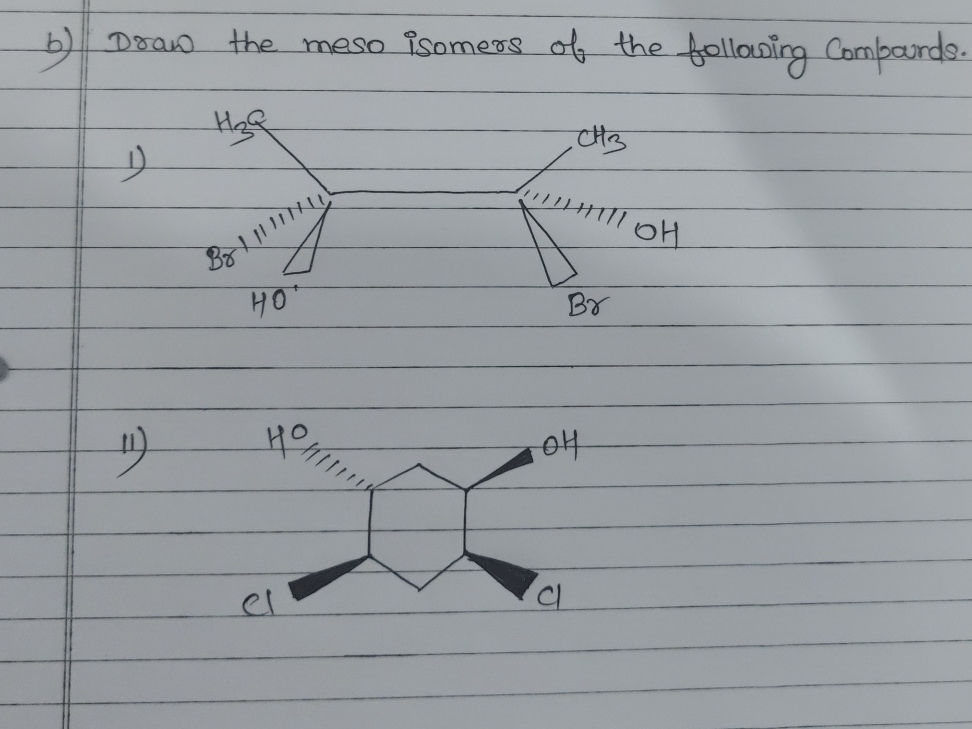 b) Draw the meso isomers of the following Compounds.
H3C
CH3
1)
Br
OH
HO
Br
11)
HO
OH
Cl
Cl